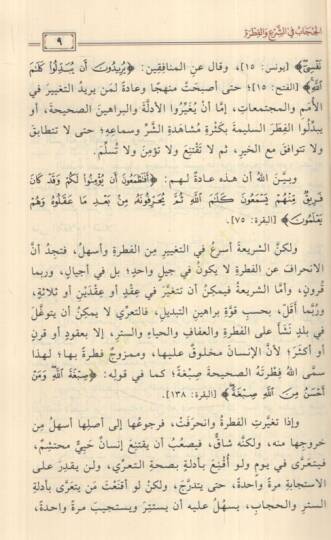 الحجاب في الشرع والفطرة
٩
نَفْسِىٓ﴾ [يونس: ١٥]، وقال عنِ المنافِقِينَ: ﴿يُرِيدُونَ أَن يُبَدِّلُوا۟ كَلَٰمَ
ٱللَّهِ﴾ [الفتح: ١٥]؛ حتى أصبحَتْ منهجًا وعادةً لمَن يريدُ التغييرَ في
الأُممِ والمجتمعاتِ، إمَّا أنْ يُغيِّرُوا الأدلَّةَ والبراهينَ الصحيحةَ، أو
يبدِّلُوا الفِطَرَ السليمةَ بكَثْرةِ مُشاهَدةِ الشَّرِّ وسماعِهِ؛ حتى لا تتطابَقَ
ولا تتوافَقَ مع الخيرِ، ثم لا تَقْتَنِعَ ولا تؤمِنَ ولا تُسلِّمَ.
وبيَّنَ اللهُ أن هذه عادةٌ لهم: ﴿أَفَتَطْمَعُونَ أَن يُؤْمِنُوا۟ لَكُمْ وَقَدْ كَانَ
فَرِيقٌ مِّنْهُمْ يَسْمَعُونَ كَلَٰمَ ٱللَّهِ ثُمَّ يُحَرِّفُونَهُۥ مِنۢ بَعْدِ مَا عَقَلُوهُ وَهُمْ
يَعْلَمُونَ﴾ [البقرة: ٧٥].
ولكنَّ الشريعةَ أسرعُ في التغييرِ مِن الفطرةِ وأسهلُ، فتجدُ أنَّ
الانحرافَ عن الفطرةِ لا يكونُ في جيلٍ واحدٍ؛ بل في أجيالٍ، وربما
قرونٍ، وأمَّا الشريعةُ فيمكنُ أن تتغيَّرَ في عِقْدٍ أو عِقْدَيْنِ أو ثلاثةٍ،
ورُبَّما أقلَّ، بحسبِ قوَّةِ براهينِ التبديلِ، فالتعرِّي لا يمكنُ أن يتوغَّلَ
في بلدٍ نَشَأَ على الفطرةِ والعفافِ والحياءِ والسترِ، إلا بعقودٍ أو قرنٍ
أو أكثرَ؛ لأنَّ الإنسانَ مخلوقٌ عليها، وممزوجٌ فطرةً بها؛ لهذا
سمَّى اللهُ فِطْرتَهُ الصحيحةَ صِبْغةً؛ كما في قولِهِ: ﴿صِبْغَةَ ٱللَّهِ وَمَنْ
أَحْسَنُ مِنَ ٱللَّهِ صِبْغَةً﴾ [البقرة: ١٣٨].
وإذا تغيَّرتِ الفطرةُ وانحرَفَتْ، فرجوعُها إلى أصلِها أسهلُ مِن
خروجِها منه، ولكنَّه شاقٌّ، فيصعُبُ أن يقتنِعَ إنسانٌ حَيِيٌّ محتشِمٌ،
فيتعرَّى في يومٍ ولو أُقنِعَ بأدلةٍ بصحةِ التعرِّي، ولن يقدِرَ على
الاستجابةِ مرةً واحدةً، حتى يتدرَّجَ، ولكنْ لو أقنَعْتَ مَن يتعرَّى بأدلةِ
السترِ والحجابِ، يسهُلُ عليه أن يستتِرَ ويستجيبَ مرةً واحدةً،